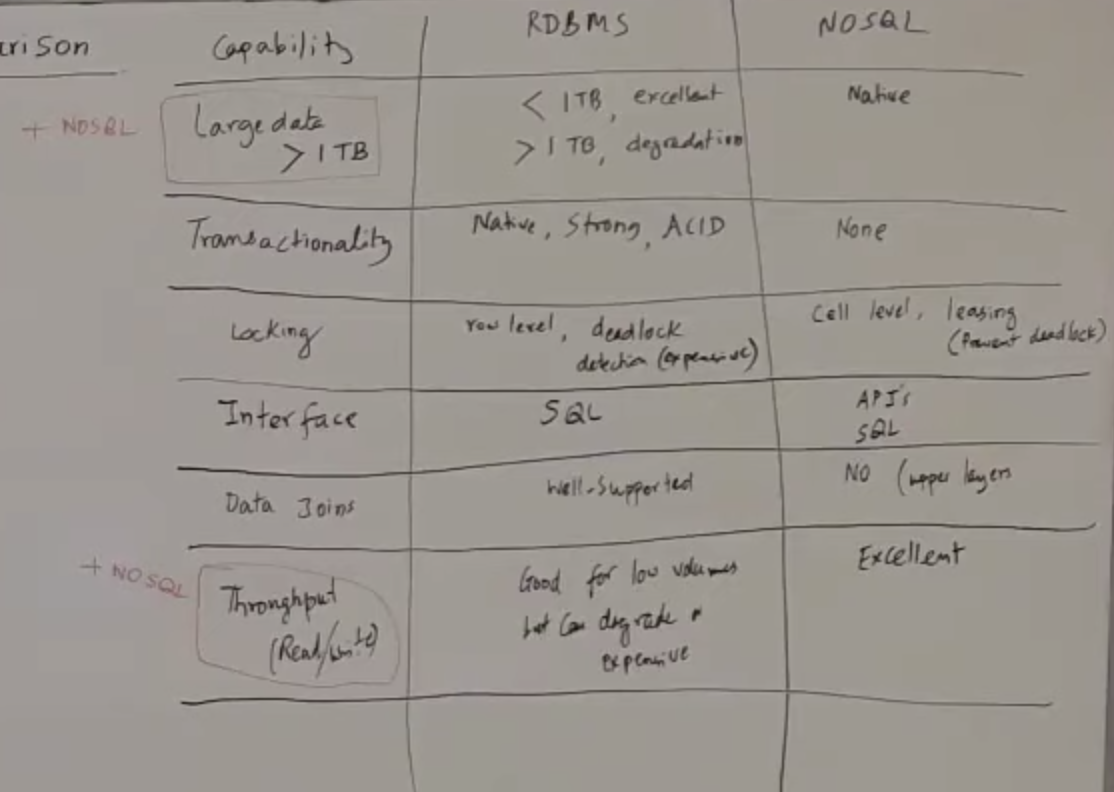 arison
Capability
RDBMS
NOSQL
+ NOSQL
Large data
> 1 TB
< 1TB, excellent
> 1 TB, degradation
Native
Transactionality
Native, Strong, ACID
None
Locking
row level, deadlock
detection (expensive)
Cell level, leasing
(Prevent deadlock)
Interface
SQL
API's
SQL
Data Joins
Well-Supported
NO (upper layers
+ NOSQL
Throughput
(Read/write)
Good for low volumes
but can degrade
expensive
Excellent